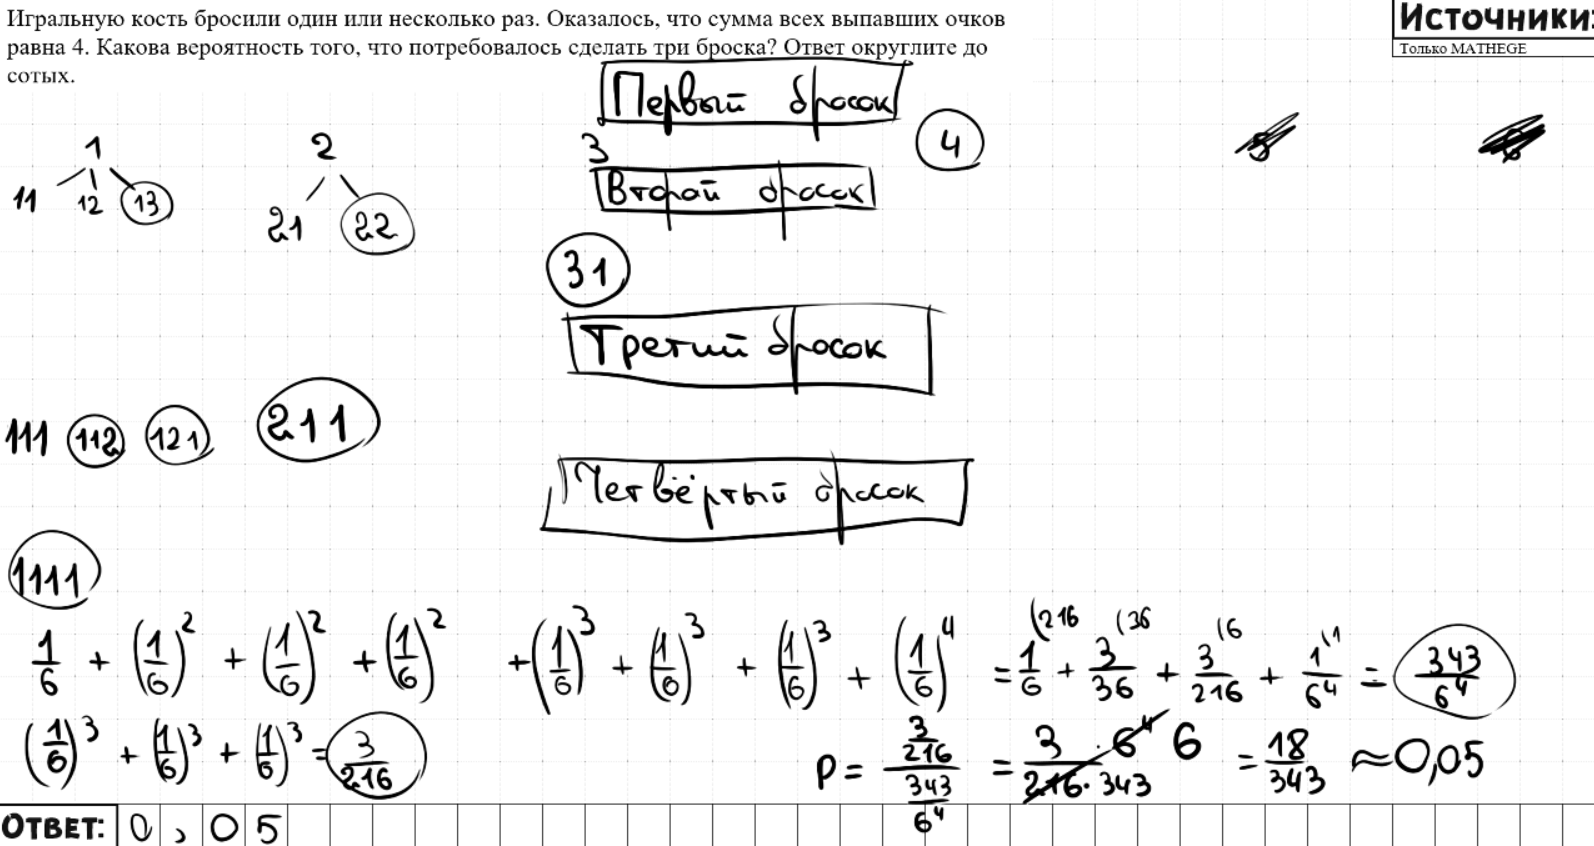 Игральную кость бросили один или несколько раз. Оказалось, что сумма всех выпавших очков
равна 4. Какова вероятность того, что потребовалось сделать три броска? Ответ округлите до
сотых.
Источники:
Только MATHEGE
Первый бросок
1 2 3 4
Второй бросок
11 12 13 21 22 31
Третий бросок
111 112 121 211
Четвёртый бросок
1111
1/6 + (1/6)^2 + (1/6)^2 + (1/6)^2 + (1/6)^3 + (1/6)^3 + (1/6)^3 + (1/6)^4 = 1/6 (216 + 3/36 (36 + 3/216 (6 + 1/6^4 (1 = 343/6^4
(1/6)^3 + (1/6)^3 + (1/6)^3 = 3/216
P = (3/216)/(343/6^4) = 3 · 6^4 6/(216 · 343) = 18/343 ≈ 0,05
ОТВЕТ: 0,05